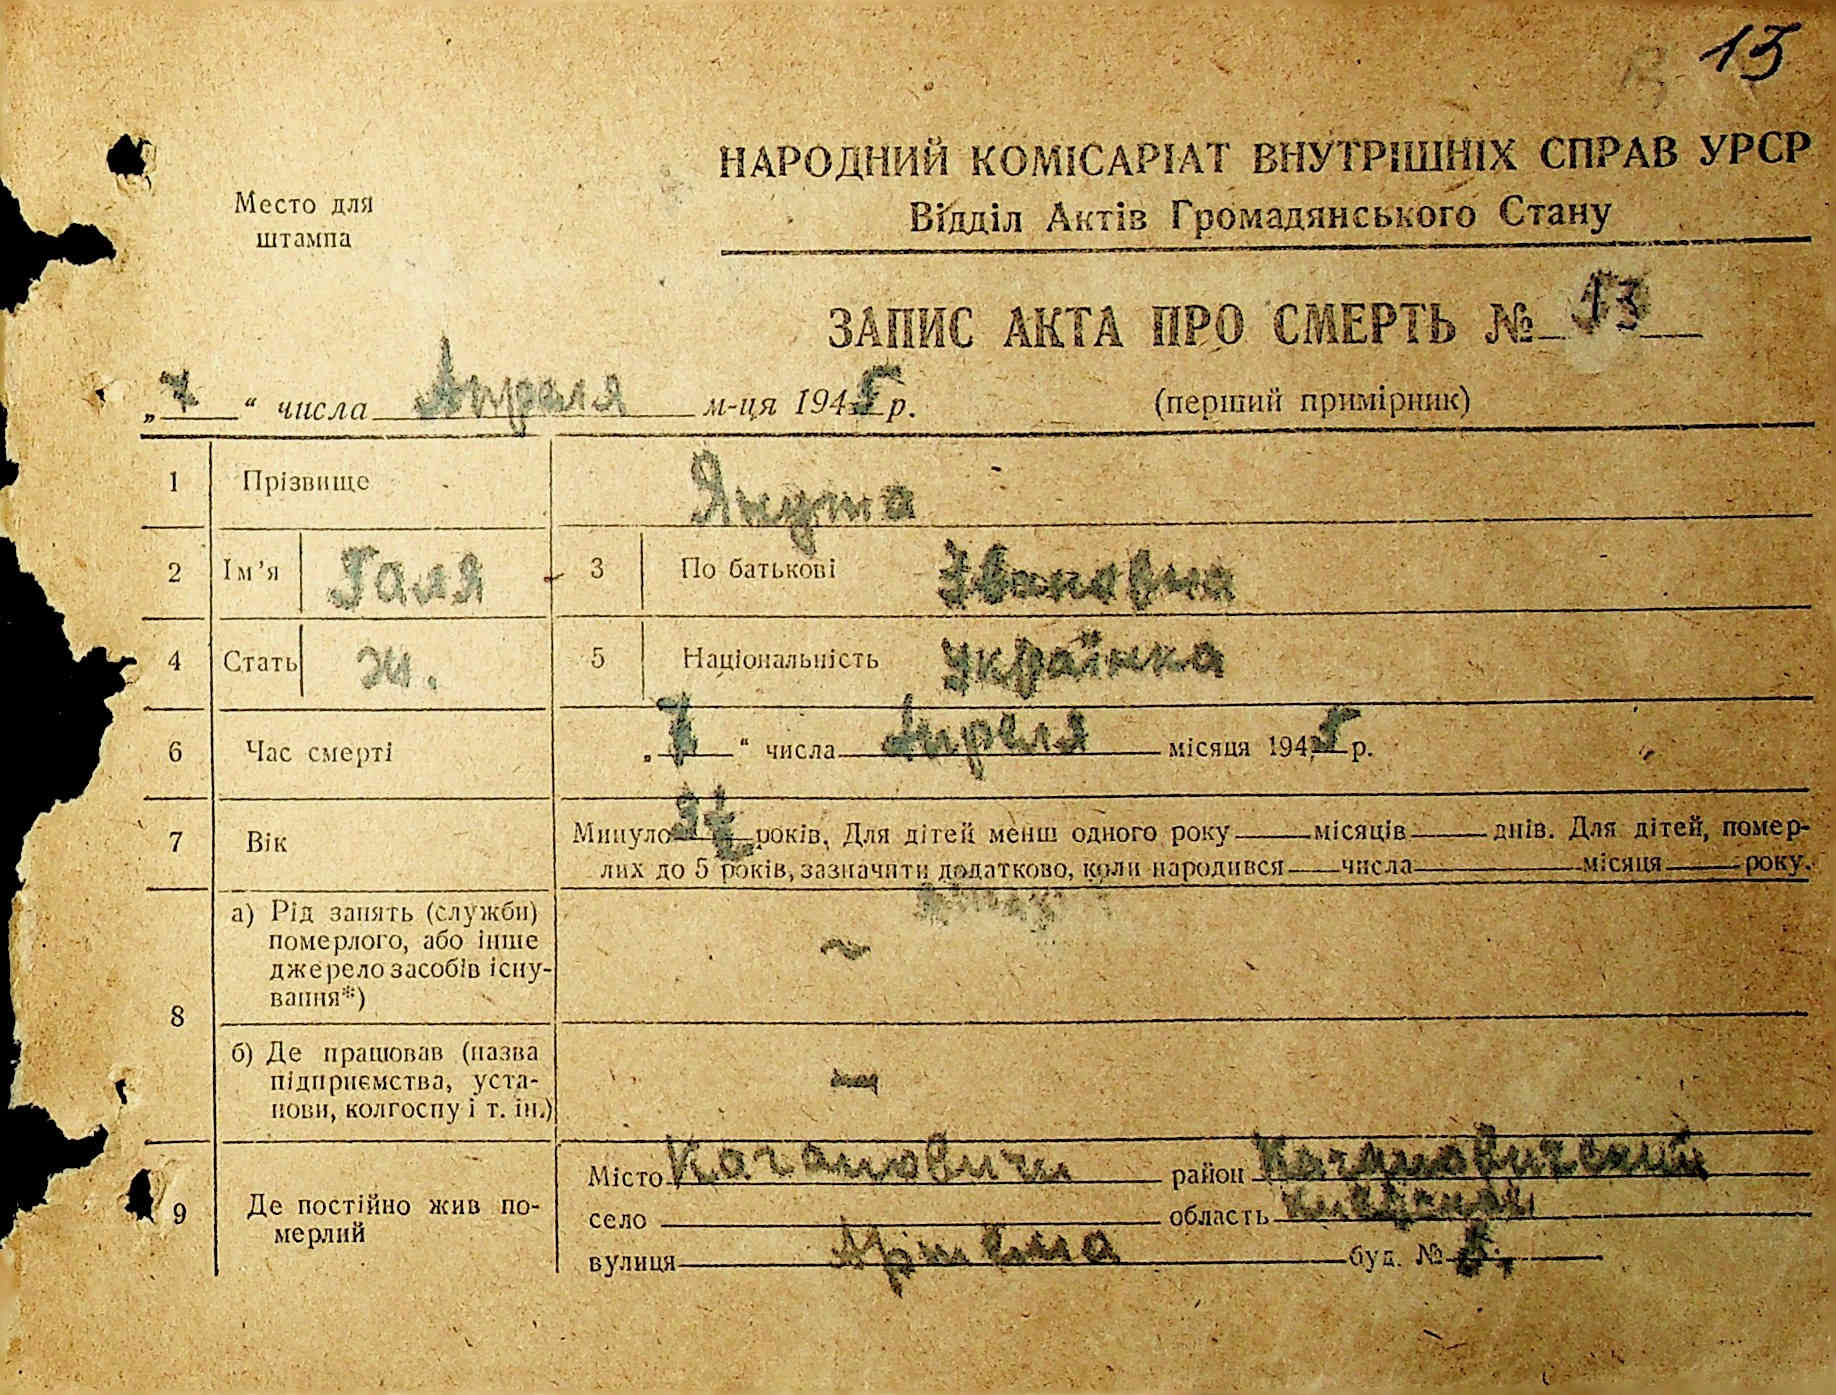 15
НАРОДНИЙ КОМІСАРІАТ ВНУТРІШНІХ СПРАВ УРСР
Відділ Актів Громадянського Стану
Место для
штампа
ЗАПИС АКТА ПРО СМЕРТЬ № 13
„ 7 “ числа Апреля м-ця 1945 р. (перший примірник)
1 Прізвище Якута
2 Ім’я Галя 3 По батькові Івановна
4 Стать ж. 5 Національність Українка
6 Час смерті „ 7 “ числа Апреля місяця 1945 р.
7 Вік Минуло років. Для дітей менш одного року місяців днів. Для дітей, помер-
лих до 5 років, зазначити додатково, коли народився числа місяця року.
8 а) Рід занять (служби)
померлого, або інше
джерело засобів існу-
вання*) —
б) Де працював (назва
підприємства, уста-
нови, колгоспу і т. ін.) —
9 Де постійно жив по-
мерлий
Місто Каганович район Кагановичский
село область Киевская
вулиця Артема буд. №